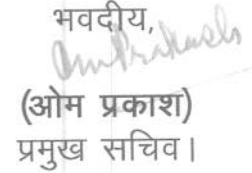 भवदीय,
(ओम प्रकाश)
प्रमुख सचिव।